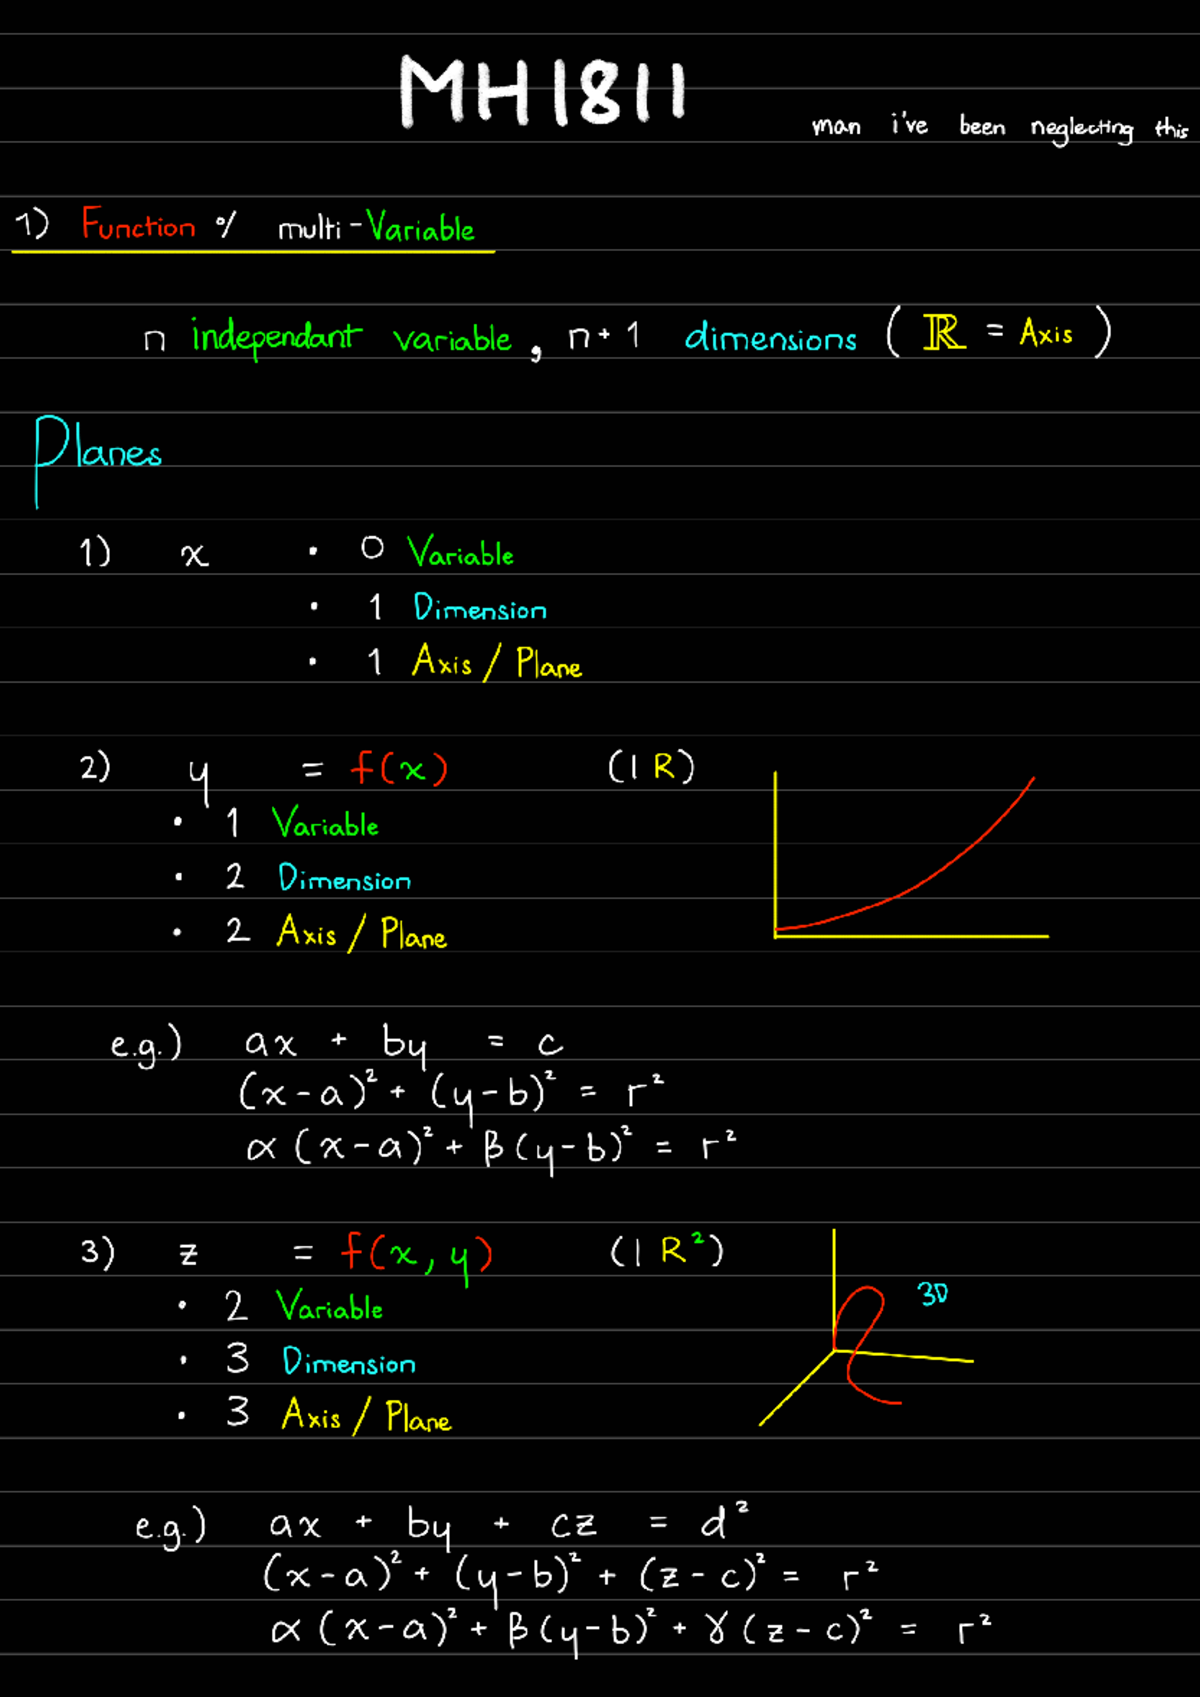 MH1811
man i've been neglecting this
1) Function % multi-Variable
n independant variable, n+1 dimensions (ℝ = Axis)
Planes
1) x • 0 Variable
• 1 Dimension
• 1 Axis / Plane
2) y = f(x) (|R)
• 1 Variable
• 2 Dimension
• 2 Axis / Plane
e.g.) ax + by = c
(x-a)² + (y-b)² = r²
α(x-a)² + β(y-b)² = r²
3) z = f(x, y) (|R²)
3D
• 2 Variable
• 3 Dimension
• 3 Axis / Plane
e.g.) ax + by + cz = d²
(x-a)² + (y-b)² + (z-c)² = r²
α(x-a)² + β(y-b)² + γ(z-c)² = r²